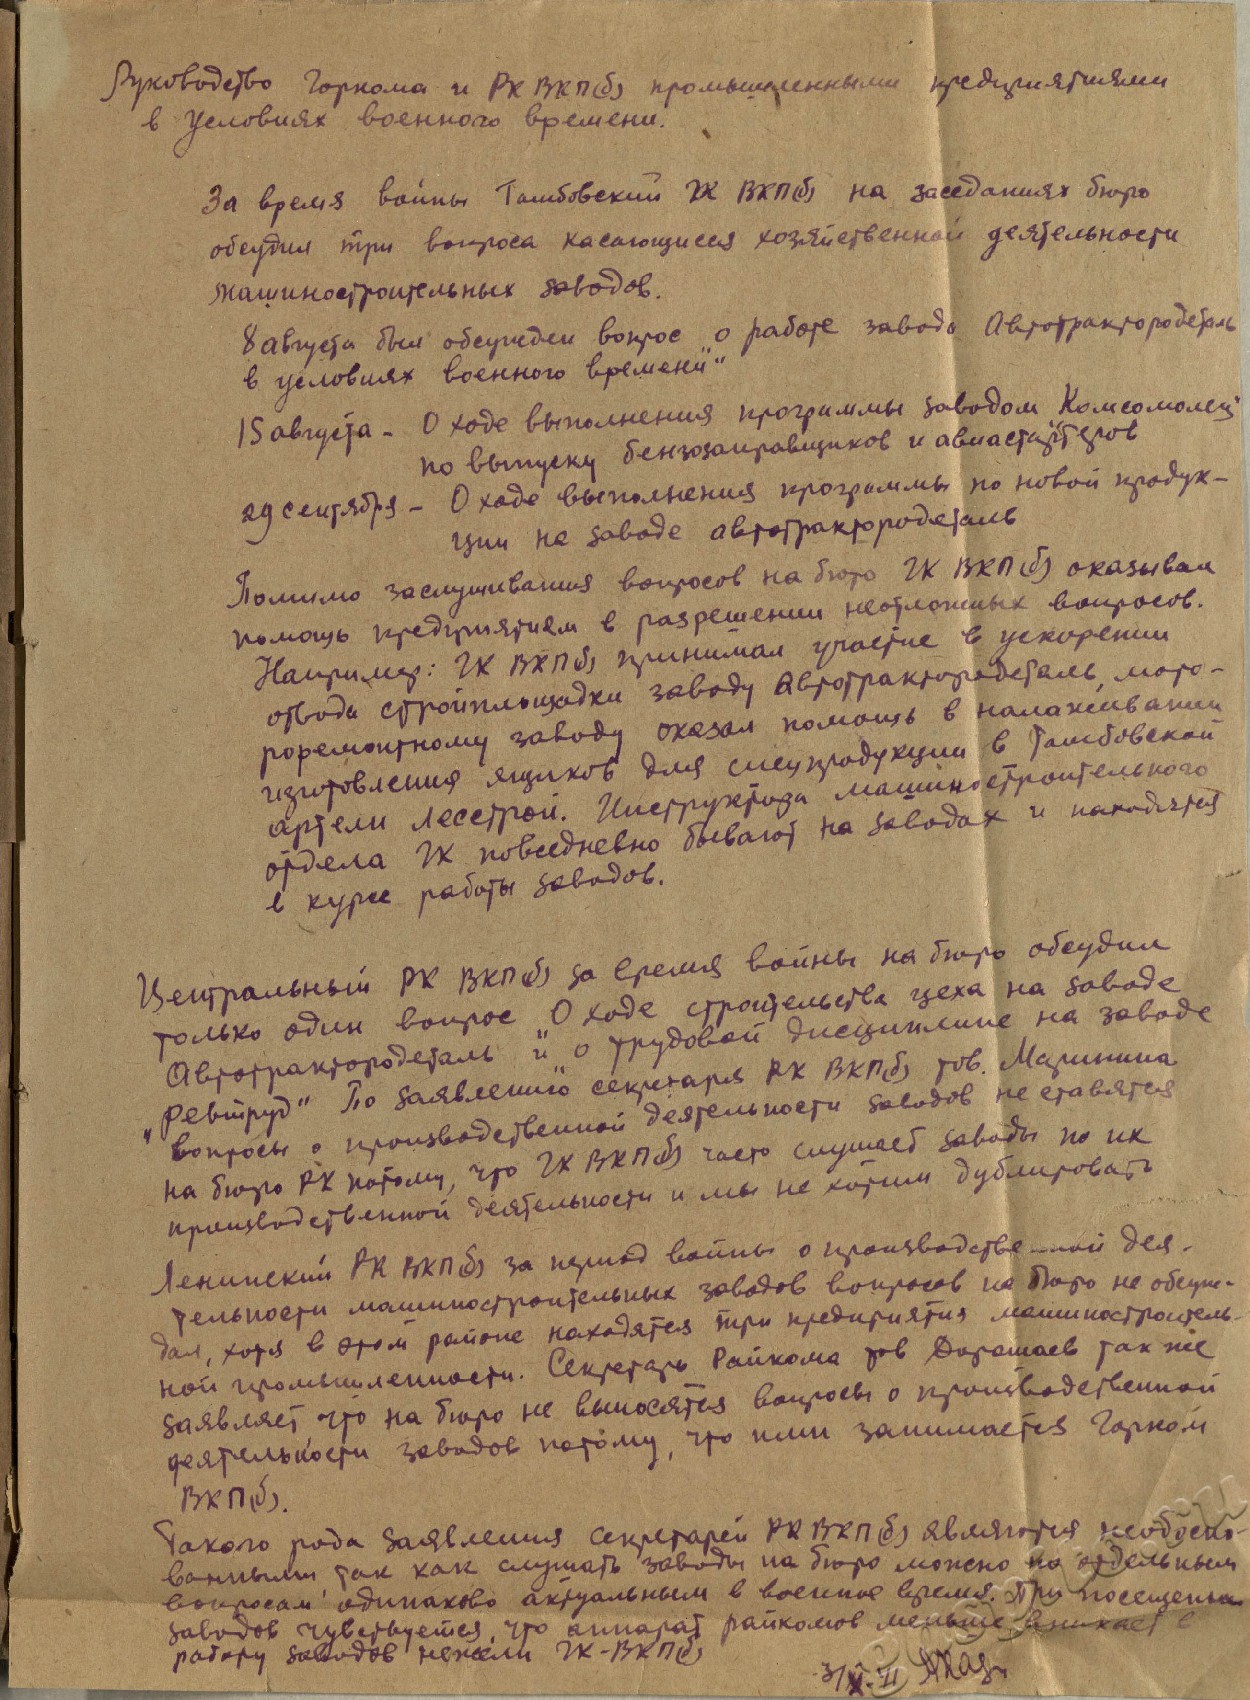 Руководство Горкома и РК ВКП(б) промышленными предприятиями
в условиях военного времени.
За время войны Тамбовский ГК ВКП(б) на заседаниях бюро
обсудил три вопроса касающиеся хозяйственной деятельности
машиностроительных заводов.
8 августа был обсужден вопрос "о работе завода Автотрактородеталь
в условиях военного времени"
15 августа - О ходе выполнения программы заводом "Комсомолец"
по выпуску бензозаправщиков и авиастартеров
29 сентября - О ходе выполнения программы по новой продук-
ции на заводе автотрактородеталь
Помимо заслушивания вопросов на бюро ГК ВКП(б) оказывал
помощь предприятием в разрешении неотложных вопросов.
Например: ГК ВКП(б) принимал участие в ускорении
отвода стройплощадки заводу Автотрактородеталь, мото-
роремонтному заводу оказал помощь в налаживании
изготовления ящиков для спецпродукции в Тамбовской
артели Лесстрой. Инструктора машиностроительного
отдела ГК повседневно бывают на заводах и находятся
в курсе работы заводов.
Центральный РК ВКП(б) за время войны на бюро обсудил
только один вопрос "О ходе строительства цеха на заводе
Автотрактородеталь" и "о трудовой дисциплине на заводе
"Ревтруд" По заявлению секретаря РК ВКП(б) тов.
вопросы о производственной деятельности заводов не ставятся
на бюро РК потому, что ГК ВКП(б) часто слушает заводы по их
производственной деятельности и мы не хотим дублировать
Ленинский РК ВКП(б) за период войны о производственной дея-
тельности машиностроительных заводов вопросов на бюро не обсуж-
дал, хотя в этом районе находятся три предприятия машиностроитель-
ной промышленности. Секретарь Райкома тов так же
заявляет что на бюро не выносятся вопросы о производственной
деятельности заводов потому, что ими занимается Горком
ВКП(б).
Такого рода заявления секретарей РК ВКП(б) являются необосно-
ванными так как слушать заводы на бюро можно по отдельным
вопросам одинаково актуальным в военное время. При посещении
заводов чувствуется, что аппарат райкомов меньше вникает в
работу заводов нежели ГК-ВКП(б)